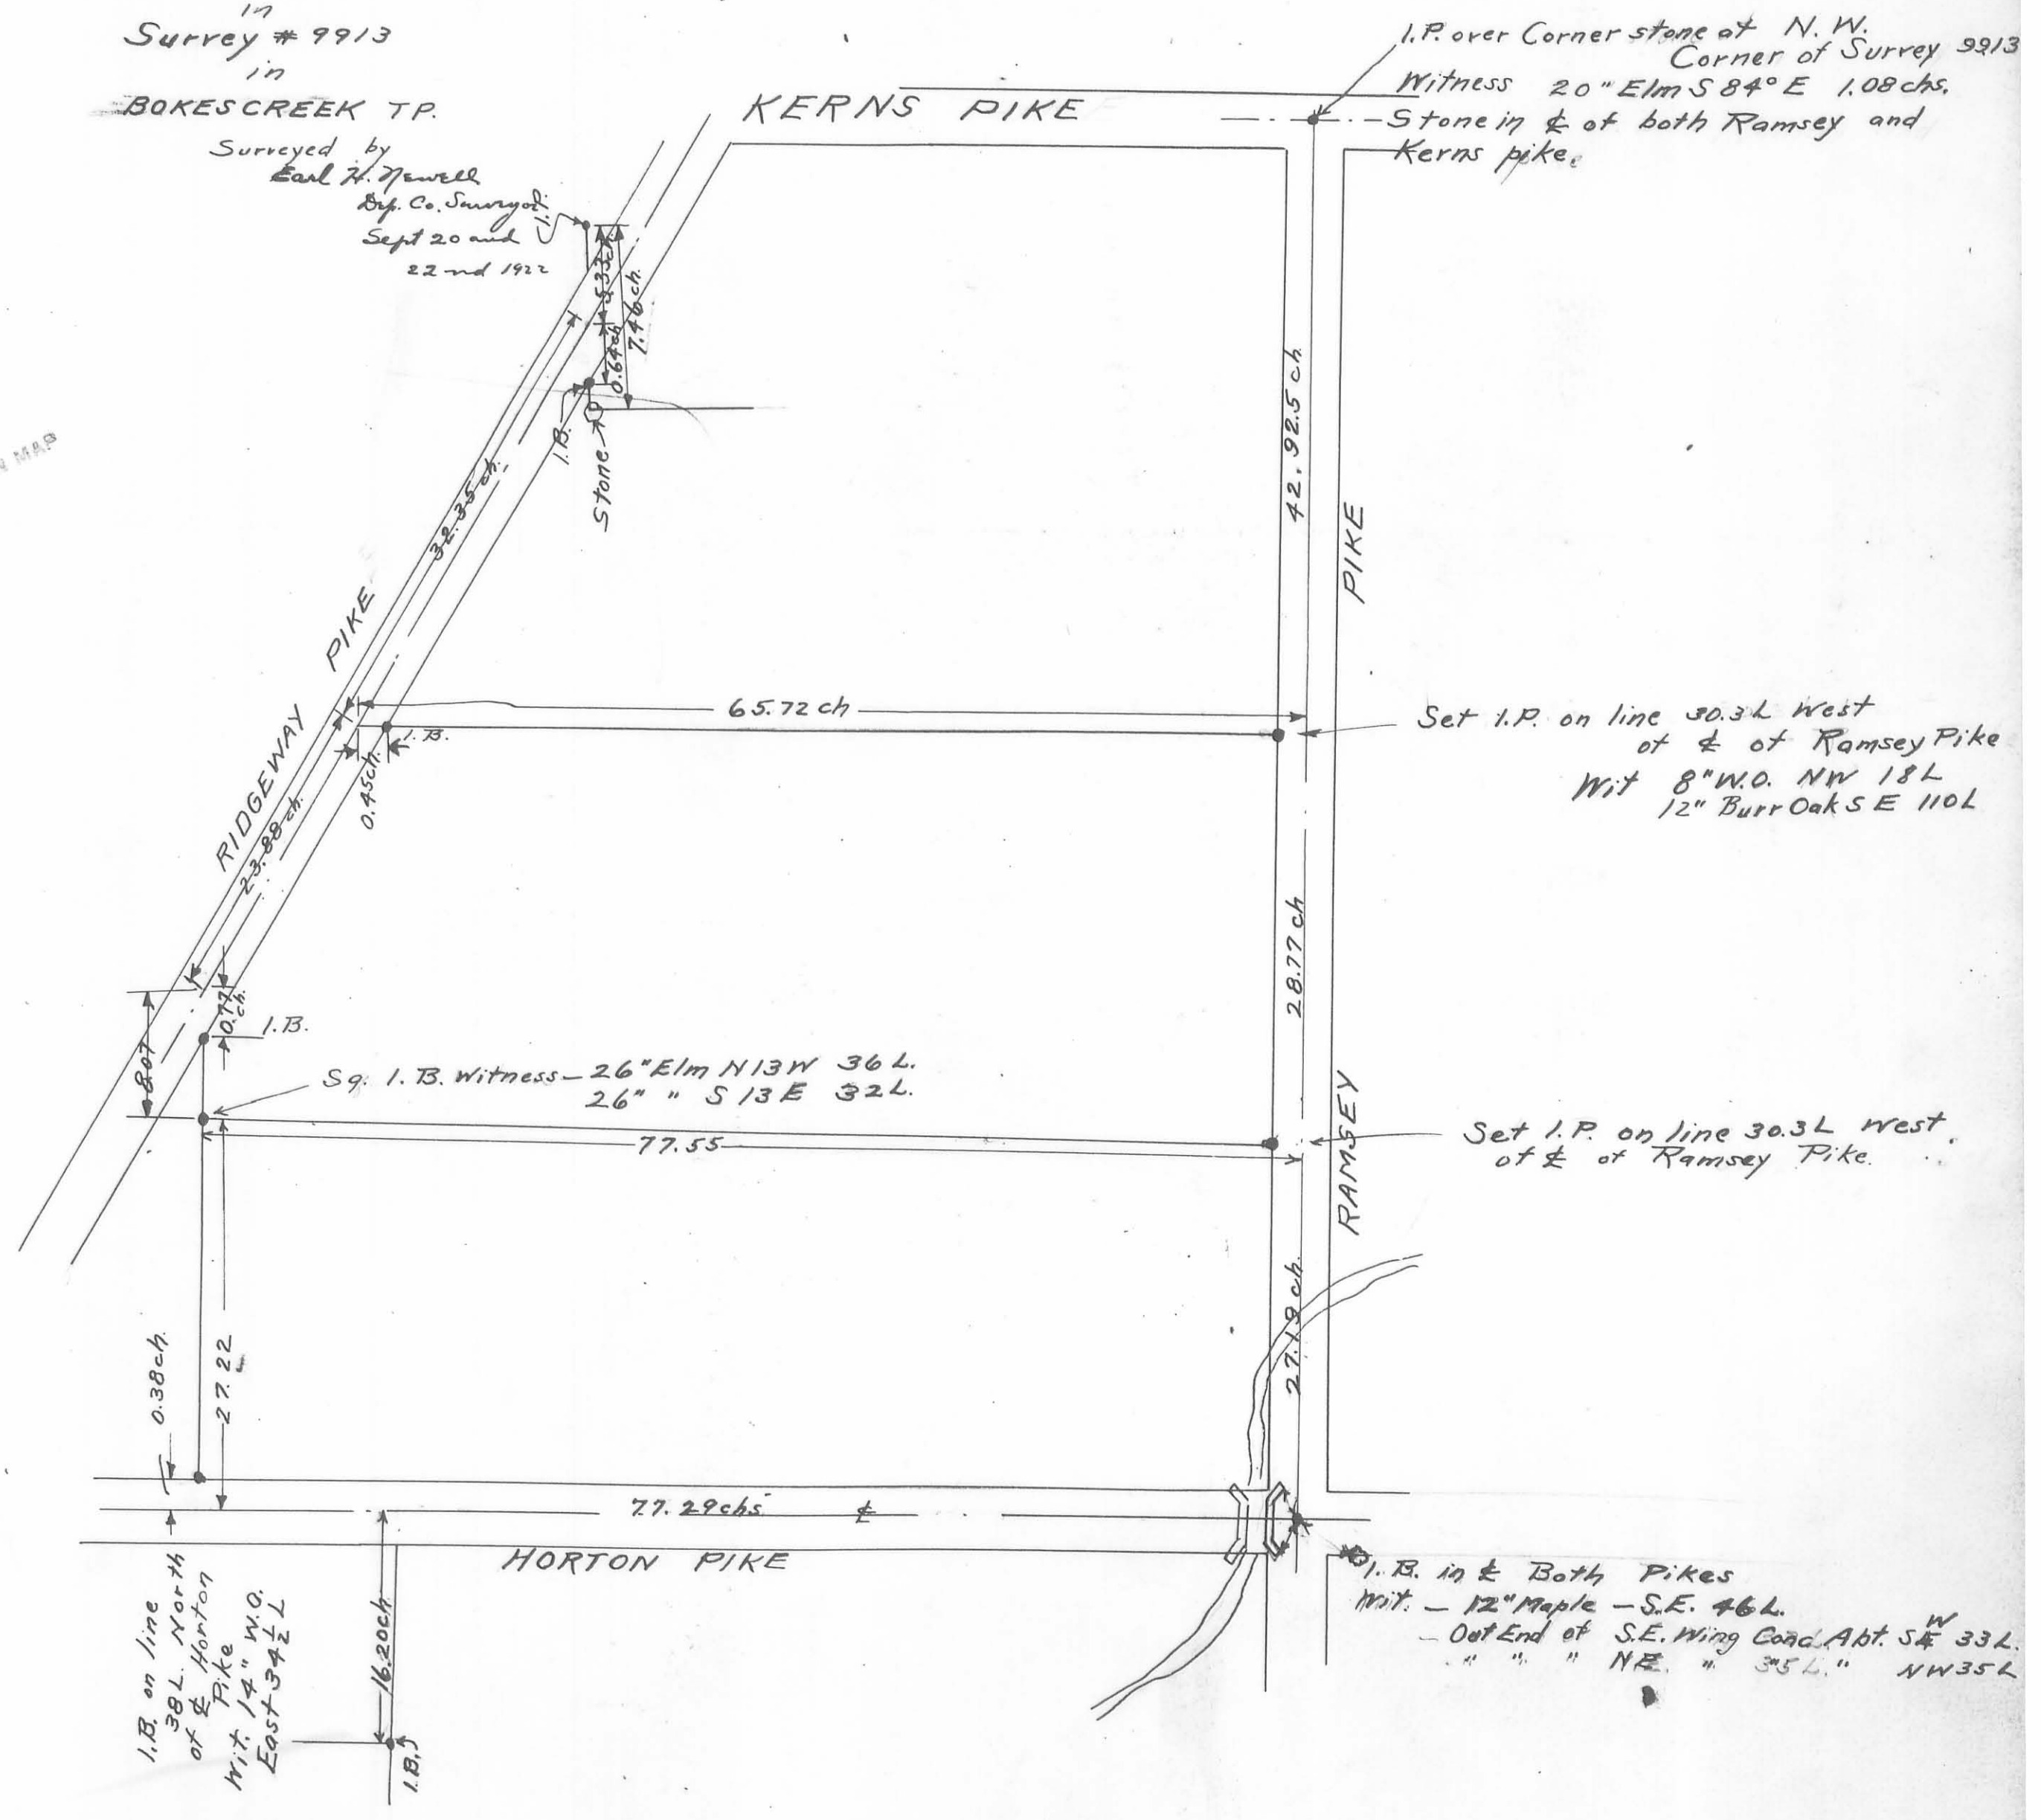 in
Survey # 9913
in
BOKESCREEK TP.
Surveyed by
Earl H. Newell
Dep. Co. Surveyor
Sept 20 and
22nd 1922
KERNS PIKE
I.P. over Corner stone at N.W.
Corner of Survey 9913
Witness 20" Elm S 84° E 1.08 chs.
Stone in ℄ of both Ramsey and
Kerns pike.
I.P.
7.46 ch.
0.64 ch
I.B.
Stone
MAP
32.35 ch.
42.92.5 ch
PIKE
RIDGEWAY PIKE
65.72 ch
I.B.
0.45 ch.
Set I.P. on line 30.3 L West
of ℄ of Ramsey Pike
Wit 8" W.O. NW 18 L
12" Burr Oak S E 110 L
23.88 ch.
28.77 ch
0.77 ch.
I.B.
8.07
Sq. I.B. Witness - 26" Elm N 13 W 36 L.
26" " S 13 E 32 L.
77.55
RAMSEY
Set I.P. on line 30.3 L West
of ℄ of Ramsey Pike.
27.19 ch.
0.38 ch.
27.22
77.29 chs. ℄
HORTON PIKE
I.B. on line
38 L. North
of ℄ Horton
Pike
Wit. 14" W.O.
East 34 1/2 L
16.20 ch
I.B.
I.B. in ℄ Both Pikes
Wit. - 12" Maple - S.E. 46 L.
- Out End of S.E. Wing Conc. Abt. SW 33 L.
" " " N E. " 35 L. " NW 35 L